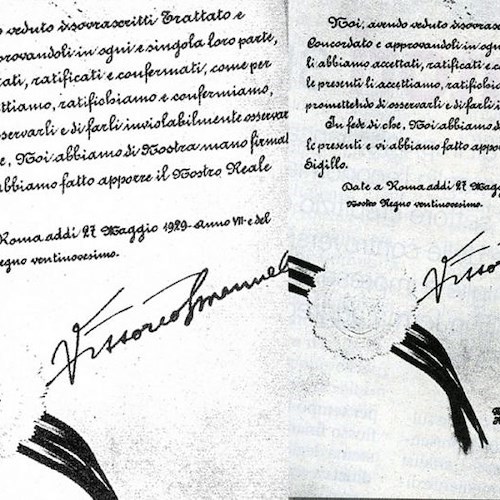 veduto disovrascritti Trattato e
provandoli in ogni e singola loro parte,
tati, ratificati e confermati, come per
ettiamo, ratifichiamo e confermiamo,
servarli e di farli inviolabilmente osservar
e, Noi abbiamo di Nostra mano firmat
abbiamo fatto apporre il Nostro Reale
Roma addì 27 Maggio 1929 - Anno VII - e del
Regno ventinovesimo.
Vittorio Emanuel
Noi, avendo veduto disovrasc
Concordato e approvandoli in ogn
li abbiamo accettati, ratificati e c
le presenti li accettiamo, ratifichia
promettendo di osservarli e di farli i
In fede di che, Noi abbiamo d
le presenti e vi abbiamo fatto appor
Sigillo.
Date a Roma addì 27 Magg
Nostro Regno ventinovesimo.
Vittor